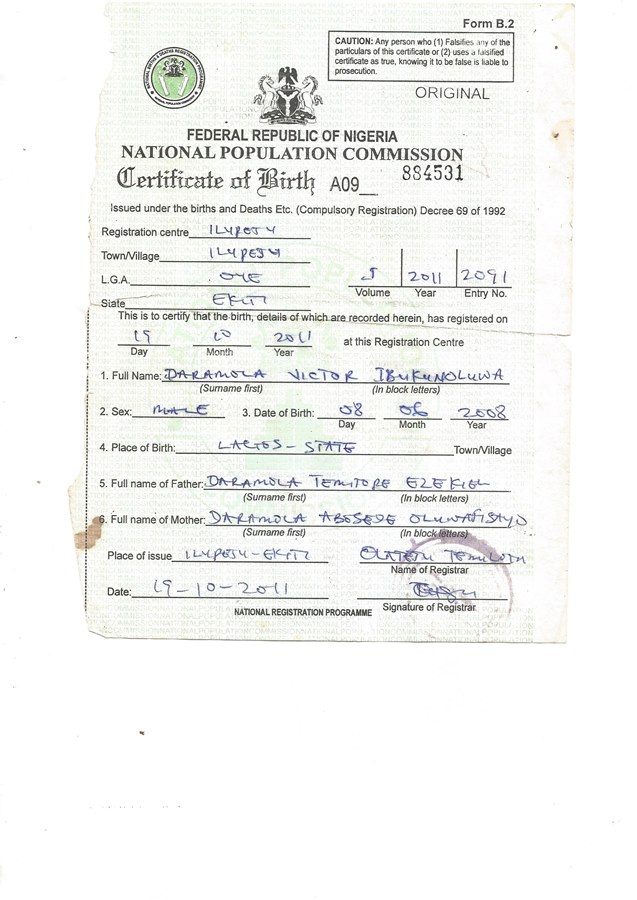 Form B.2
CAUTION: Any person who (1) Falsifies any of the
particulars of this certificate or (2) uses a falsified
certificate as true, knowing it to be false is liable to
prosecution.
ORIGINAL
FEDERAL REPUBLIC OF NIGERIA
NATIONAL POPULATION COMMISSION
Certificate of Birth A09 884531
Issued under the births and Deaths Etc. (Compulsory Registration) Decree 69 of 1992
Registration centre ILUPEJU
Town/Village ILUPEJU
L.G.A. OYE 5 2011 2091
Volume Year Entry No.
State EKITI
This is to certify that the birth, details of which are recorded herein, has registered on
19 10 2011 at this Registration Centre
Day Month Year
1. Full Name: DARAMOLA VICTOR IBUKUNOLUWA
(Surname first) (In block letters)
2. Sex: MALE 3. Date of Birth: 08 06 2008
Day Month Year
4. Place of Birth: LAGOS - STATE Town/Village
5. Full name of Father: DARAMOLA TEMITOPE EZEKIEL
(Surname first) (In block letters)
6. Full name of Mother: DARAMOLA ABOSEDE OLUWAFISAYO
(Surname first) (In block letters)
Place of issue ILUPEJU-EKITI
Name of Registrar
Date: 19-10-2011
Signature of Registrar
NATIONAL REGISTRATION PROGRAMME